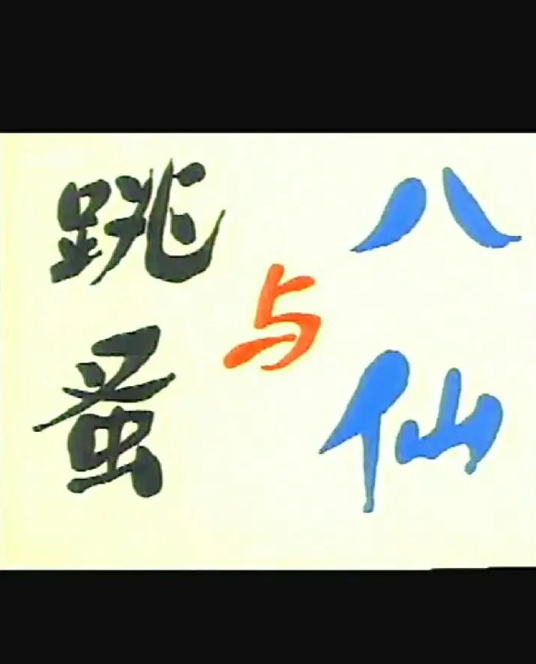 八仙
与
跳蚤